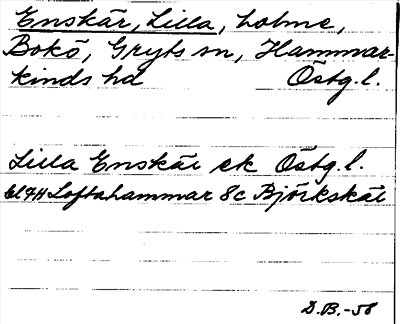 Enskär, Lilla, holme,
Bokö, Gryts sn, Hammar-
kinds hd Östg. l.
Lilla Enskär ek Östg. l.
bl 7H Loftahammar 8c Björkskär
D.B.-58